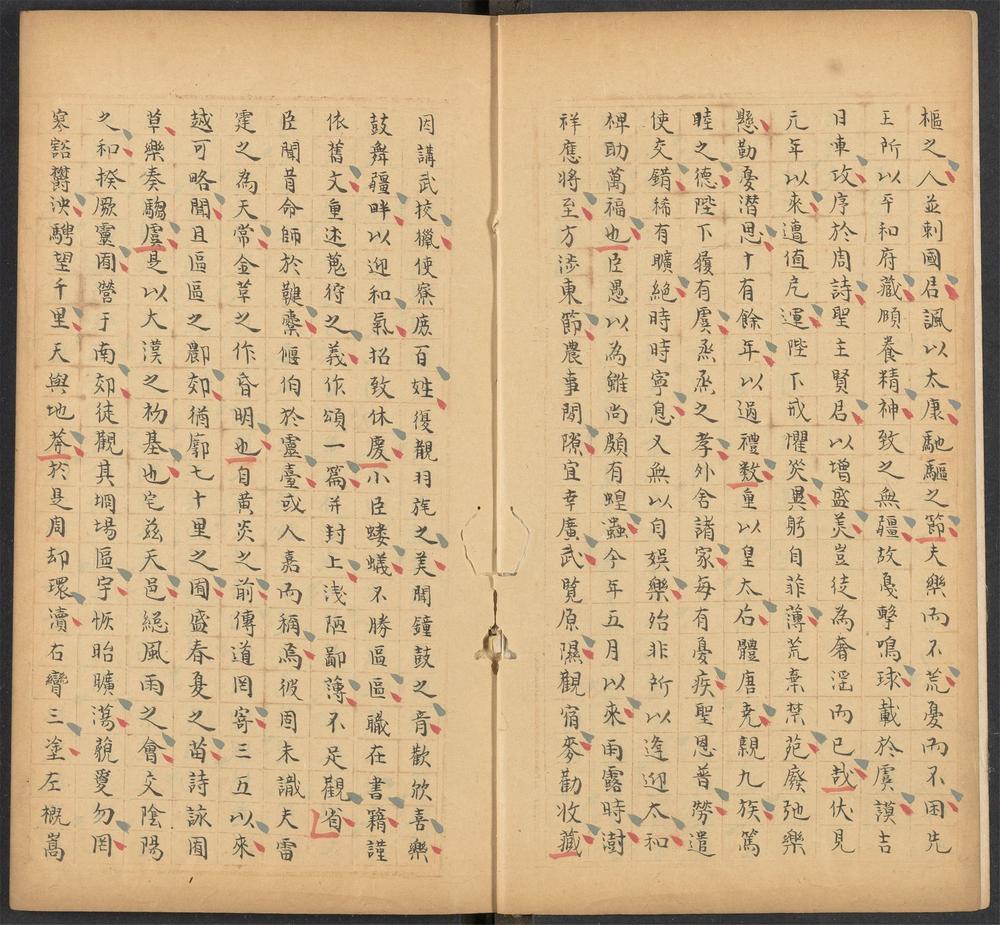 樞之人並刺國君諷以太康馳驅之節夫樂而不荒憂而不困先
王所以平和府藏頤養精神致之無疆故戛擊鳴球載於虞謨吉
日車攻序於周詩聖主賢君以增盛美豈徒為奢淫而已哉伏見
元年以來遭值戹運陛下戒懼災異躬自菲薄荒棄禁苑廢弛樂
懸勤憂潛思十有餘年以過禮數重以皇太后體唐堯親九族篤
睦之德陛下履有虞烝烝之孝外舍諸家每有憂疾聖恩普勞遣
使交錯稀有曠絕時時寧息又無以自娛樂殆非所以逢迎太和
裨助萬福也臣愚以為雖尚頗有蝗蟲今年五月以來雨露時澍
祥應將至方涉東節農事閒隙宜幸廣武覽原隰觀宿麥勸收藏
因講武挍獵使寮庶百姓復觀羽旄之美聞鐘鼓之音歡欣喜樂
鼓舞疆畔以迎和氣招致休慶小臣螻蟻不勝區區職在書籍謹
依舊文重述蒐狩之義作頌一篇并封上淺陋鄙薄不足觀省
臣聞昔命師於鞬櫜偃伯於靈臺或人嘉而稱焉彼固未識夫雷
霆之為天常金草之作昏明也自黃炎之前傳道罔寄三五以來
越可略聞且區區之酆郊猶廓七十里之囿盛春夏之苗詩詠囿
草樂奏騶虞是以大漢之初基也宅茲天邑總風雨之會交陰陽
之和揆厥靈囿營于南郊徒觀其坰場區宇恢眙曠蕩藐敻勿罔
寥豁鬱泱騁望千里天與地莽於是周却環瀆右矕三塗左概嵩